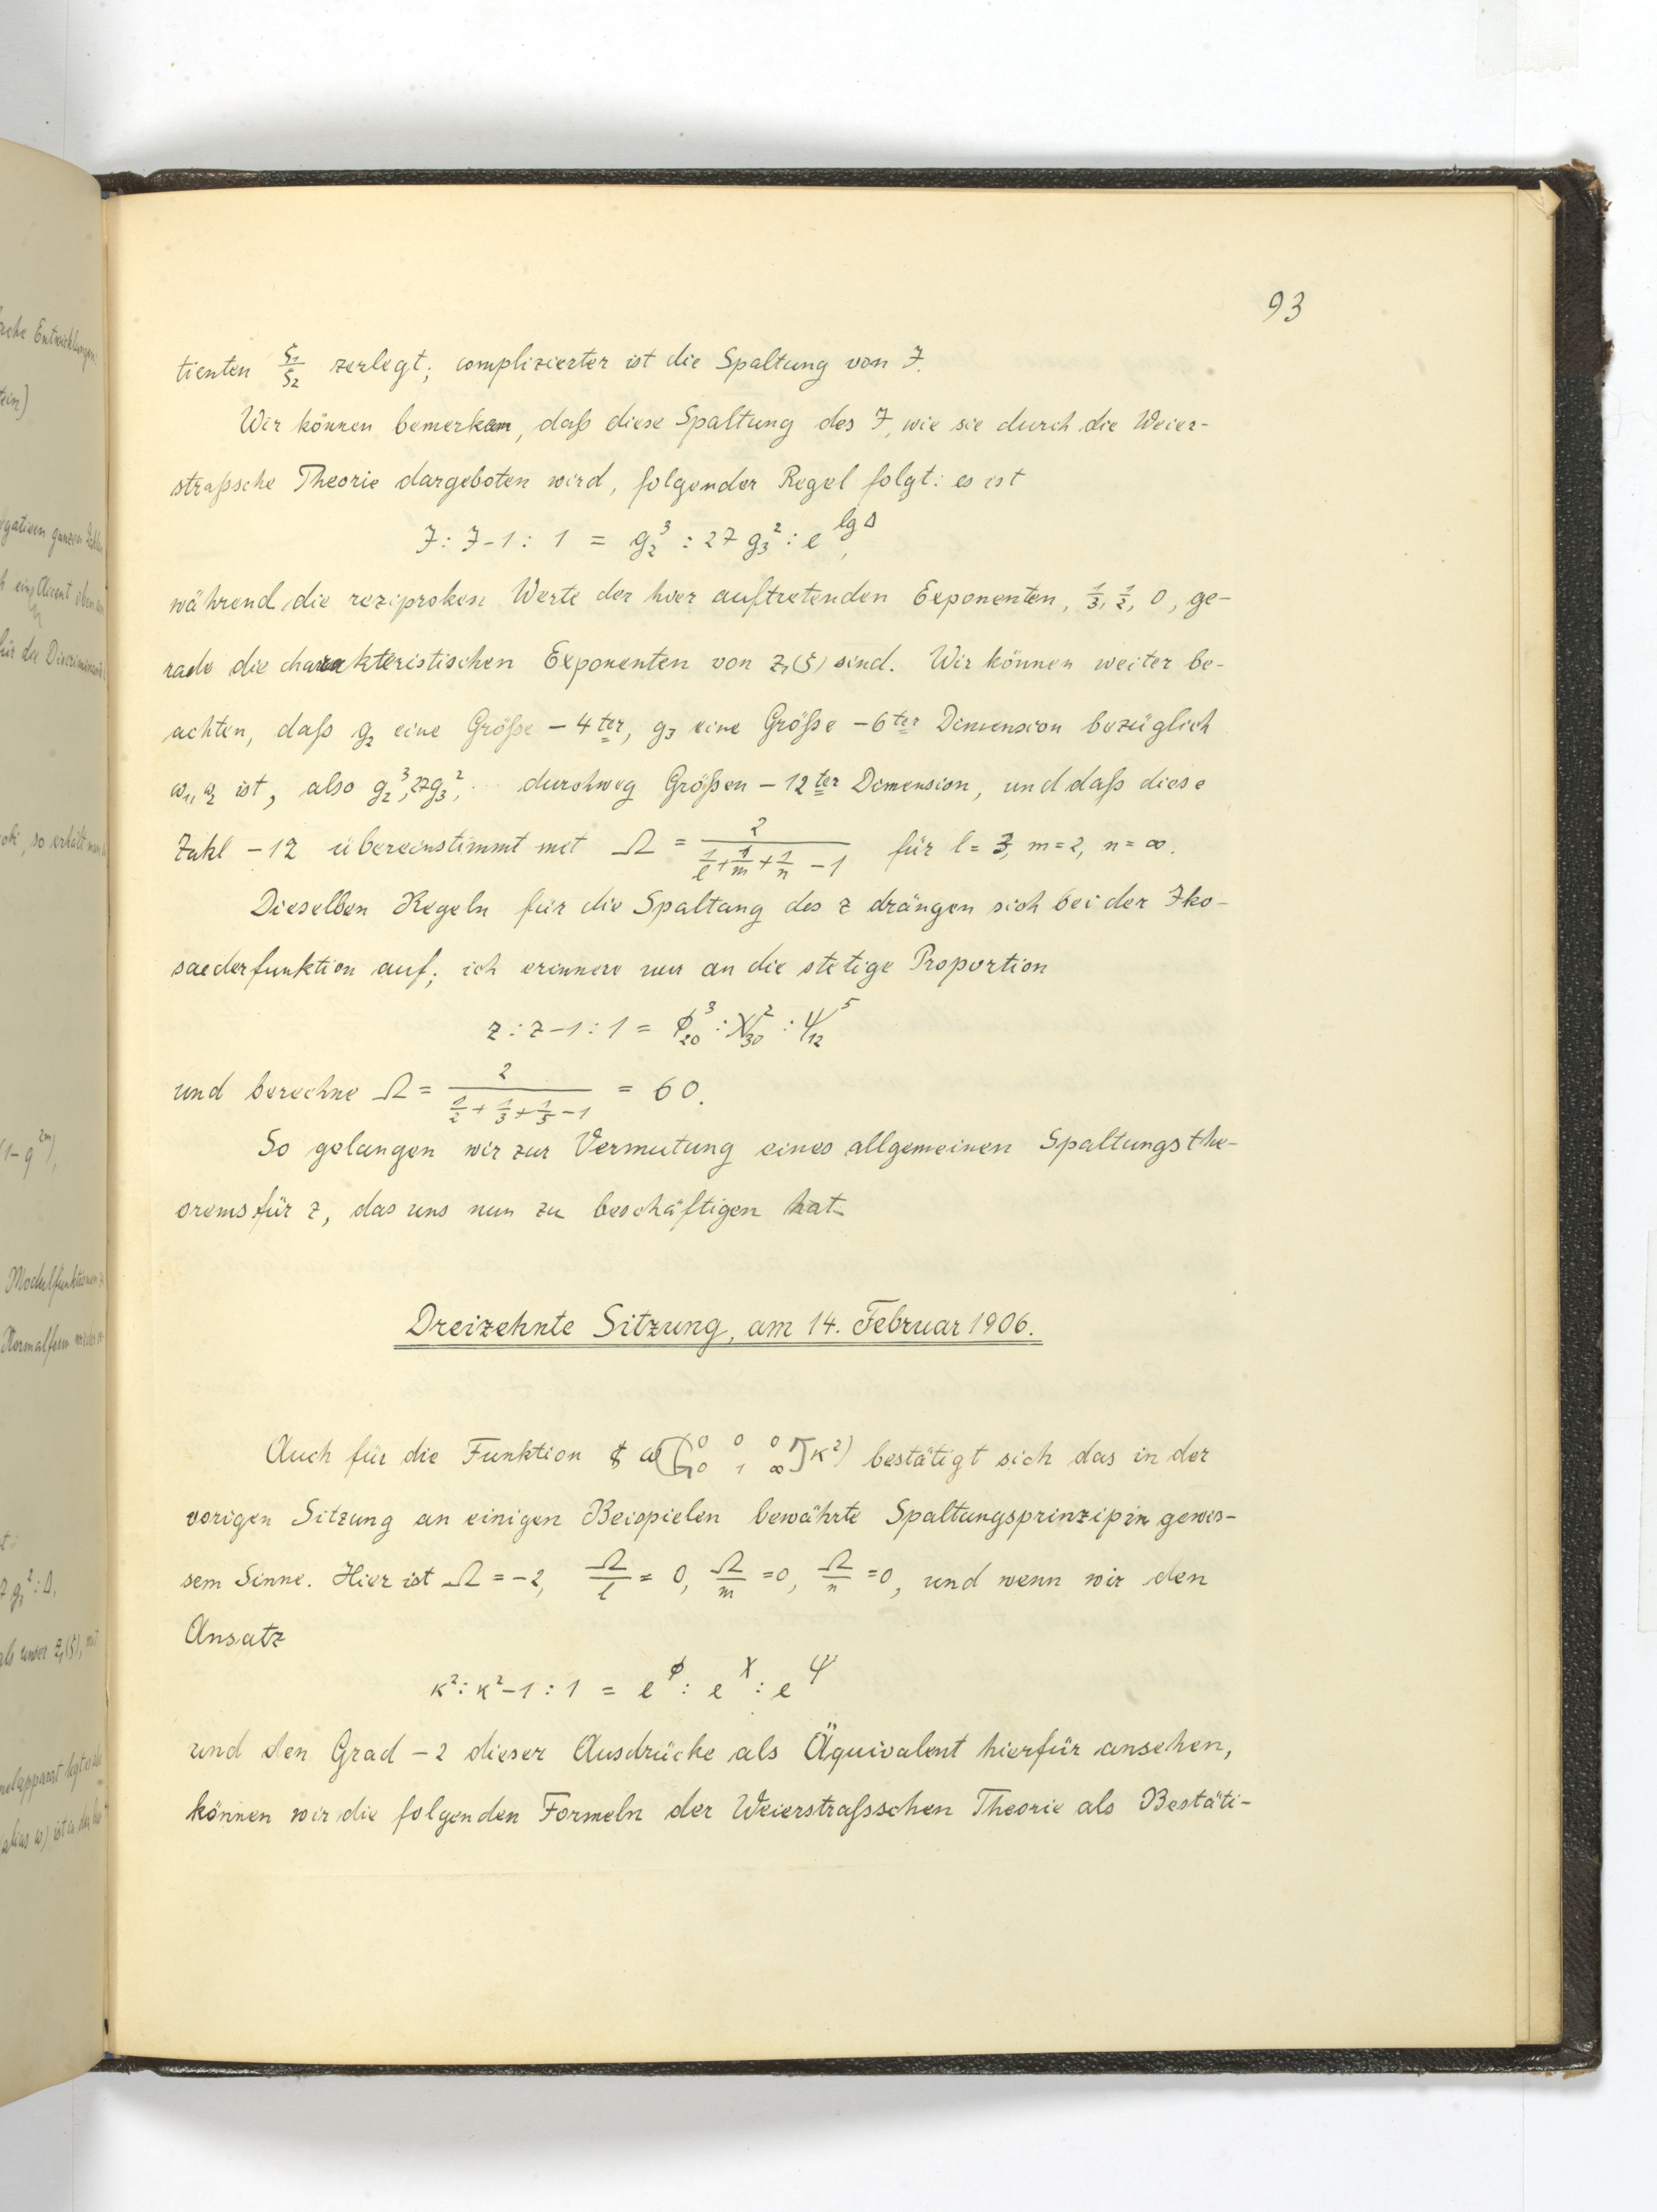 93
tienten ζ₁/ζ₂ zerlegt; complizierter ist die Spaltung von J.
Wir können bemerken, daß diese Spaltung des J, wie sie durch die Weier-
straßsche Theorie dargeboten wird, folgender Regel folgt: es ist
J : J-1 : 1 = g₂³ : 27 g₃² : e^{lg Δ},
während die reziproken Werte der hier auftretenden Exponenten, 1/3, 1/2, 0, ge-
rade die charakteristischen Exponenten von z₁(ζ) sind. Wir können weiter be-
achten, daß g₂ eine Größe – 4ter, g₃ eine Größe – 6ter Dimension bezüglich
ω₁, ω₂ ist, also g₂³, 27g₃², .. durchweg Größen – 12ter Dimension, und daß diese
Zahl – 12 übereinstimmt mit Ω = 2/(1/l + 1/m + 1/n – 1) für l = 3, m = 2, n = ∞.
Dieselben Regeln für die Spaltung des z drängen sich bei der Iko-
saederfunktion auf; ich erinnere nur an die stetige Proportion
z : z–1 : 1 = ϕ₂₀³ : χ₃₀² : ψ₁₂⁵
und berechne Ω = 2/(1/2 + 1/3 + 1/5 – 1) = 60.
So gelangen wir zur Vermutung eines allgemeinen Spaltungsthe-
orems für z, das uns nun zu beschäftigen hat.
Dreizehnte Sitzung, am 14. Februar 1906.
Auch für die Funktion ω([0 0 0 0 1 ∞] κ²) bestätigt sich das in der
vorigen Sitzung an einigen Beispielen bewährte Spaltungsprinzip in gewis-
sem Sinne. Hier ist Ω = –2, Ω/l = 0, Ω/m = 0, Ω/n = 0, und wenn wir den
Ansatz
κ² : κ²–1 : 1 = e^ϕ : e^χ : e^ψ
und den Grad – 2 dieser Ausdrücke als Äquivalent hierfür ansehen,
können wir die folgenden Formeln der Weierstraßschen Theorie als Bestäti-